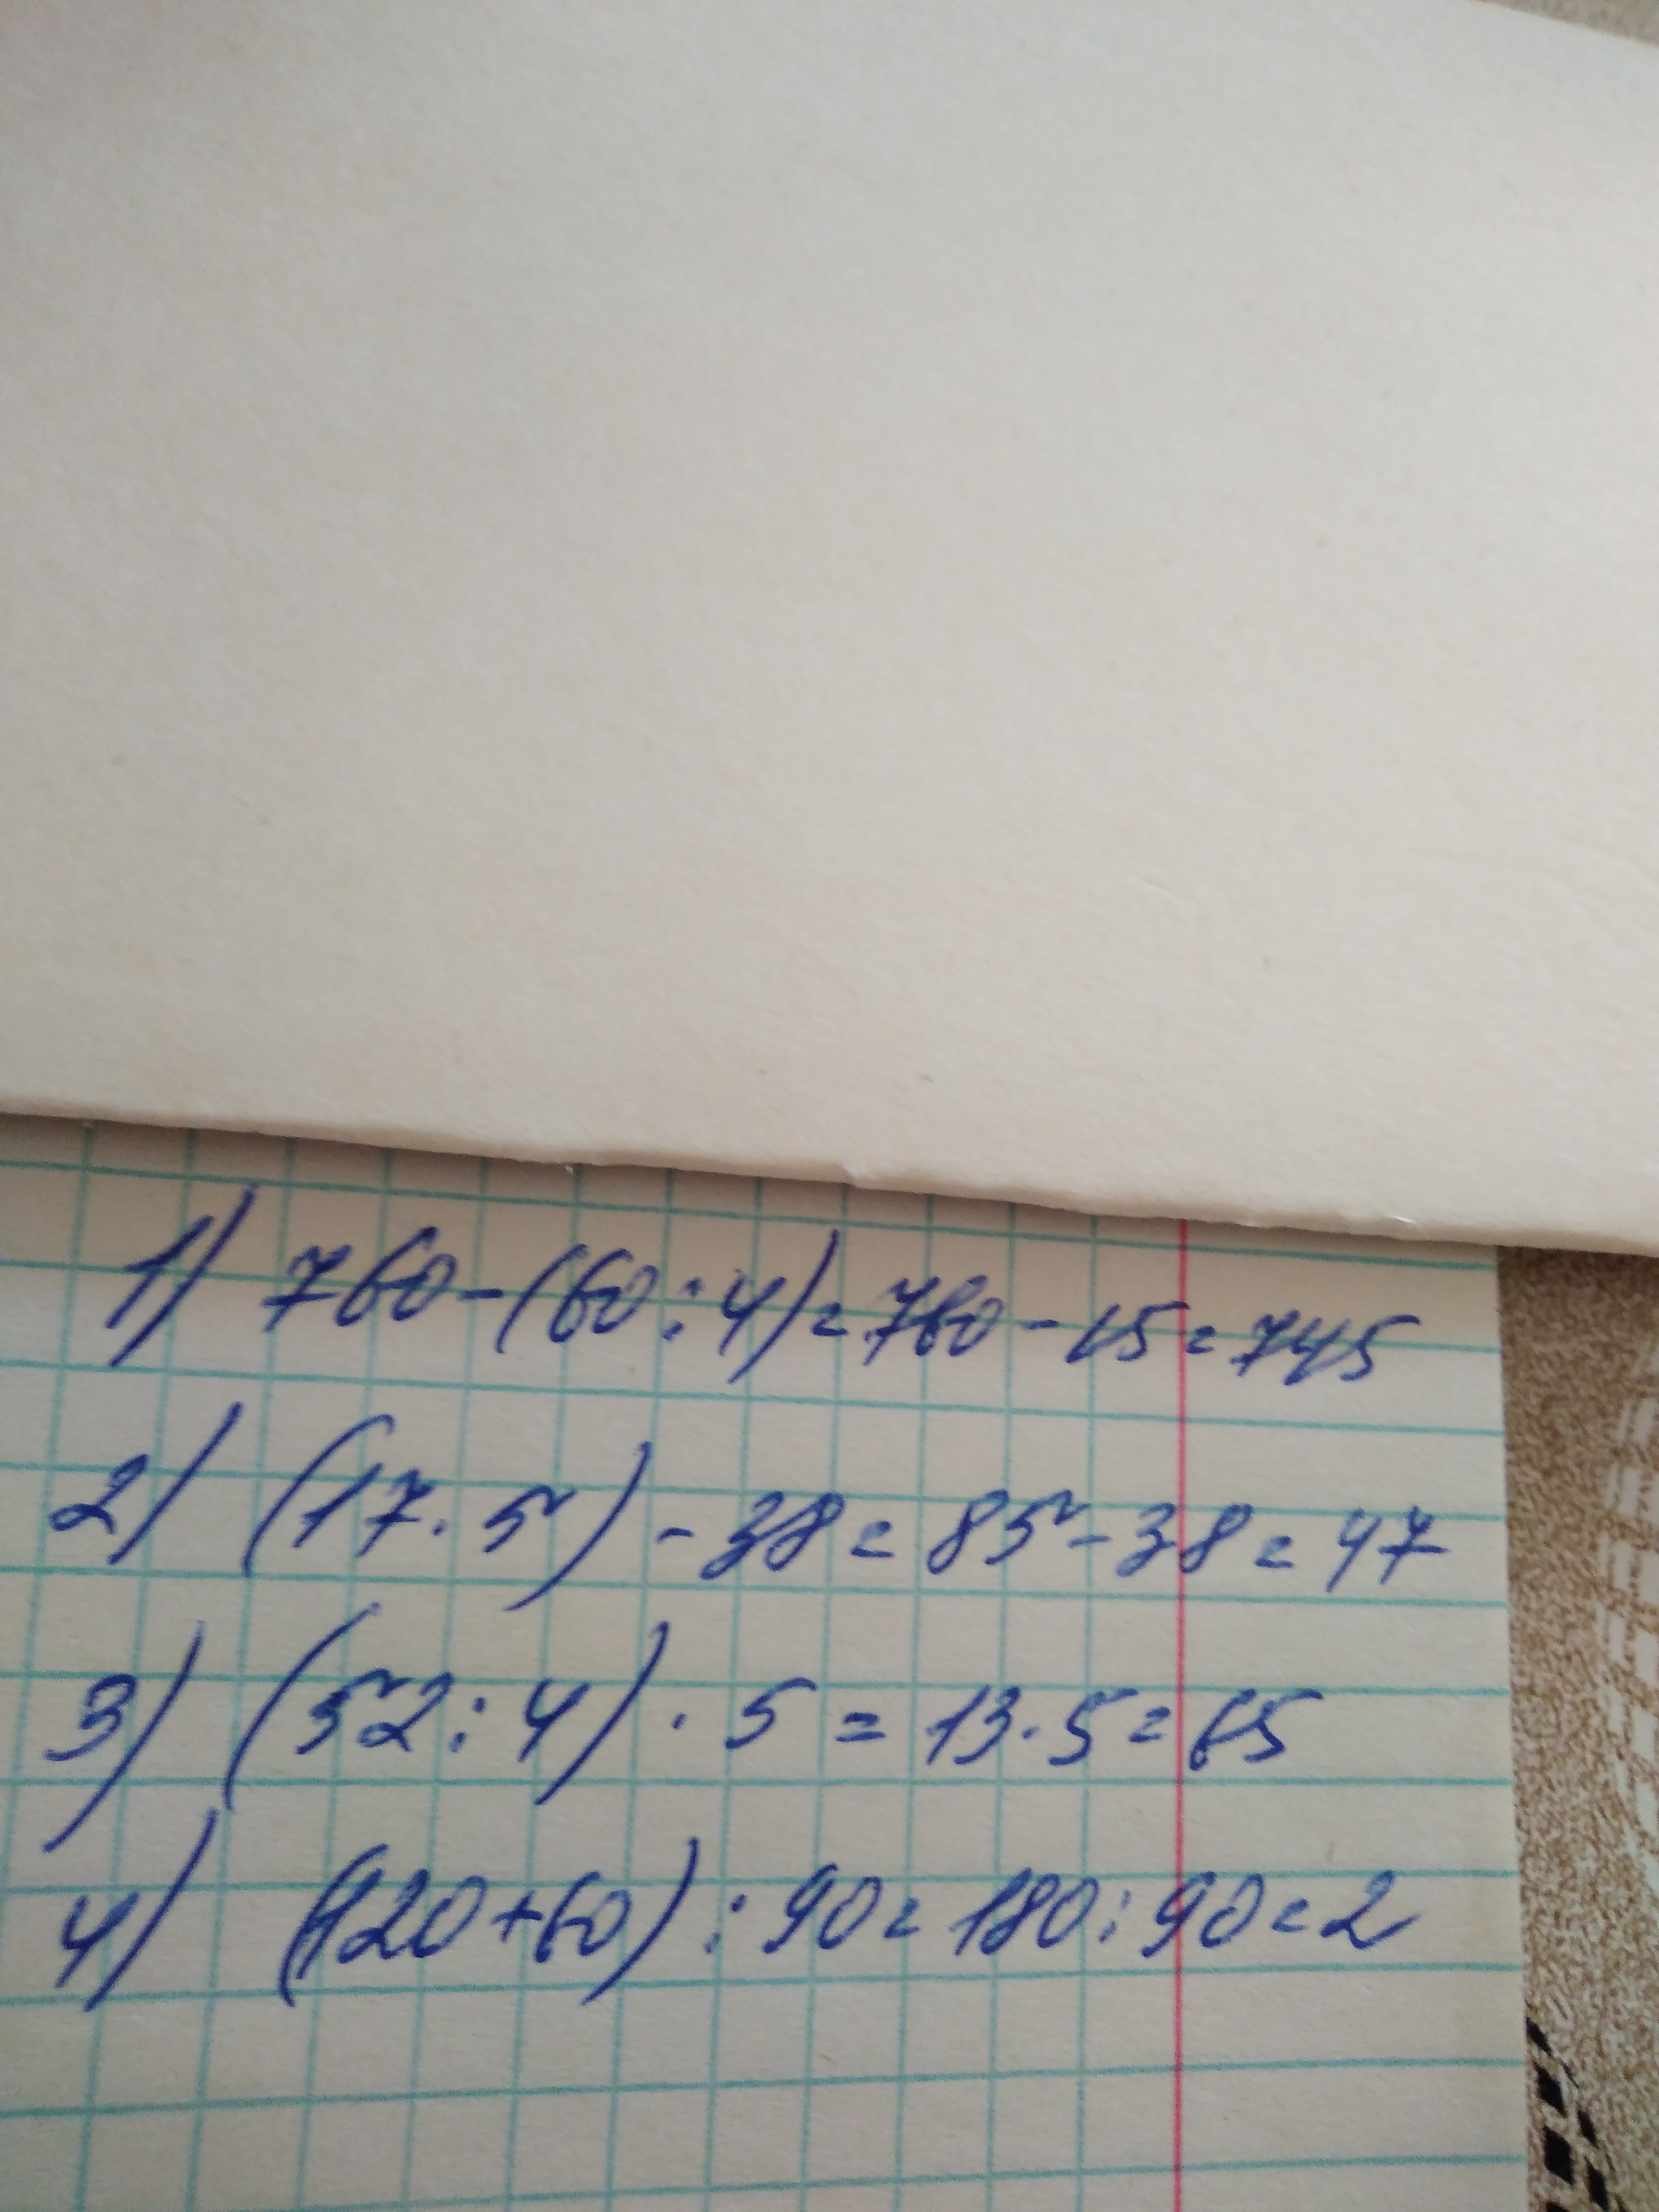 1) 760-(60:4)=760-15=745
2) (17·5)-38=85-38=47
3) (52:4)·5=13·5=65
4) (120+60):90=180:90=2